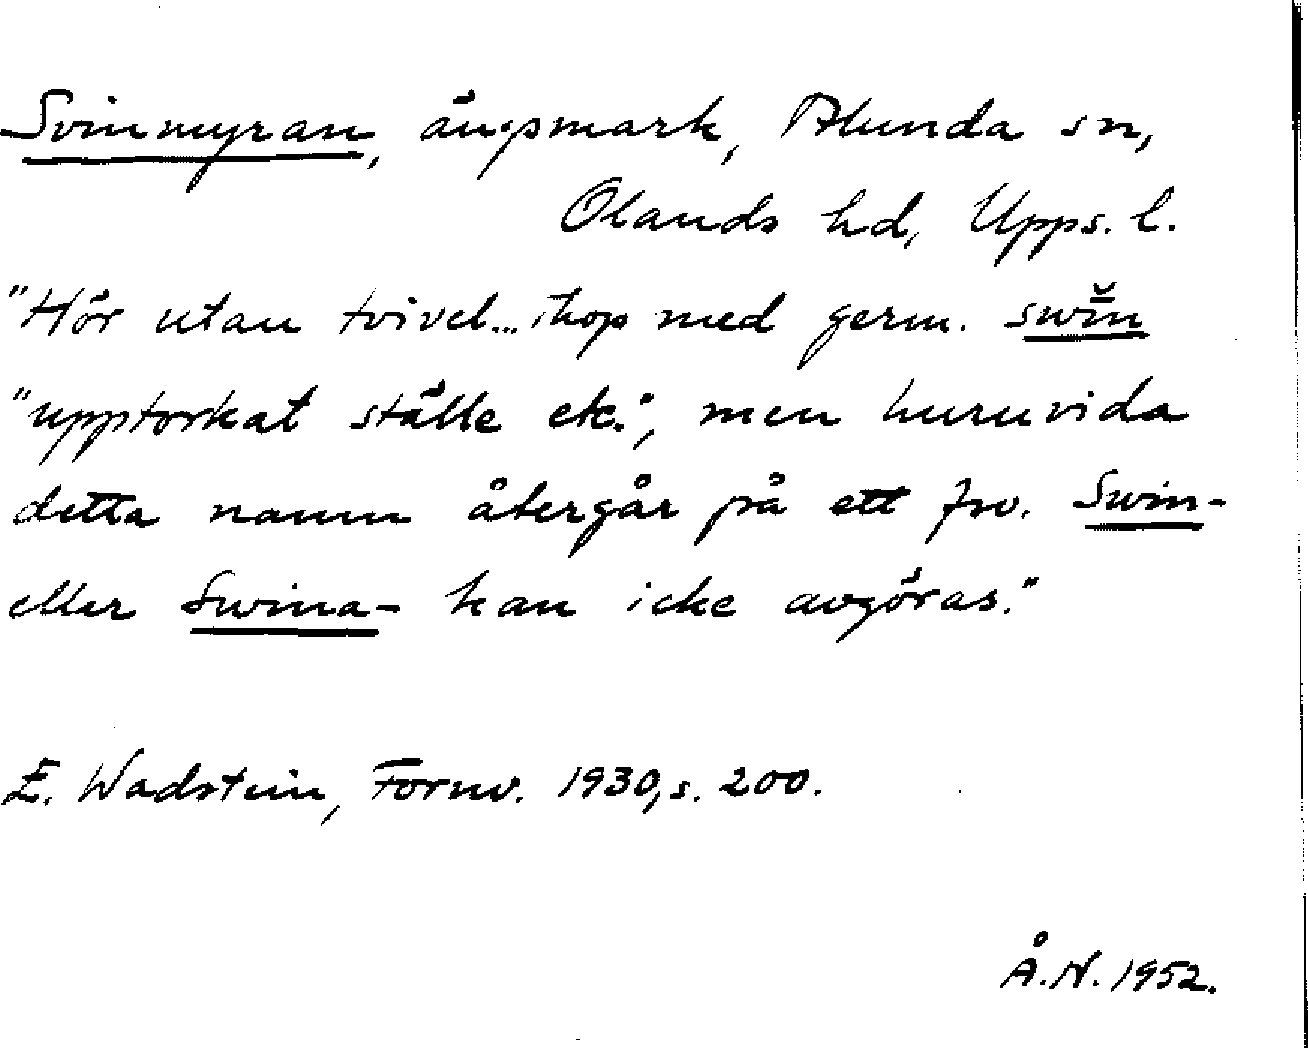 Svinmyran, ängsmark, Alunda sn,
Olands hd, Upps. l.
"Hör utan tvivel... ihop med germ. swı̄̆n
"upptorkat ställe etc.", men huruvida
detta namn återgår på ett fsv. Swin-
eller Swina- kan icke avgöras."
E. Wadstein, Fornv. 1930, s. 200.
Å.N. 1952.